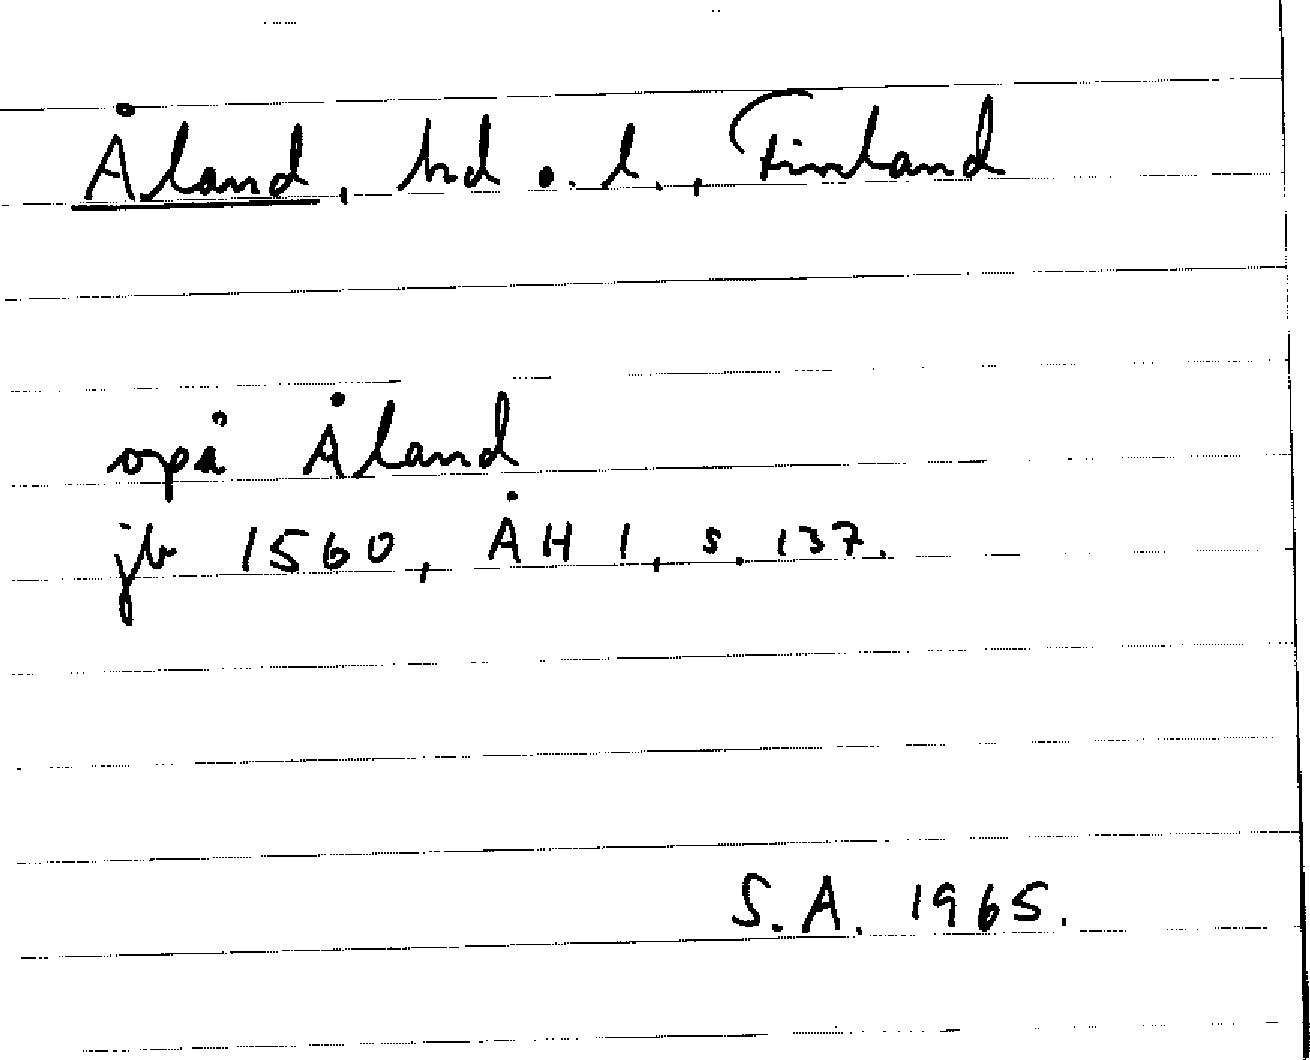 Åland, hd o. l., Finland
opå Åland
jb 1560, ÅH 1, s. 137.
S.A. 1965.